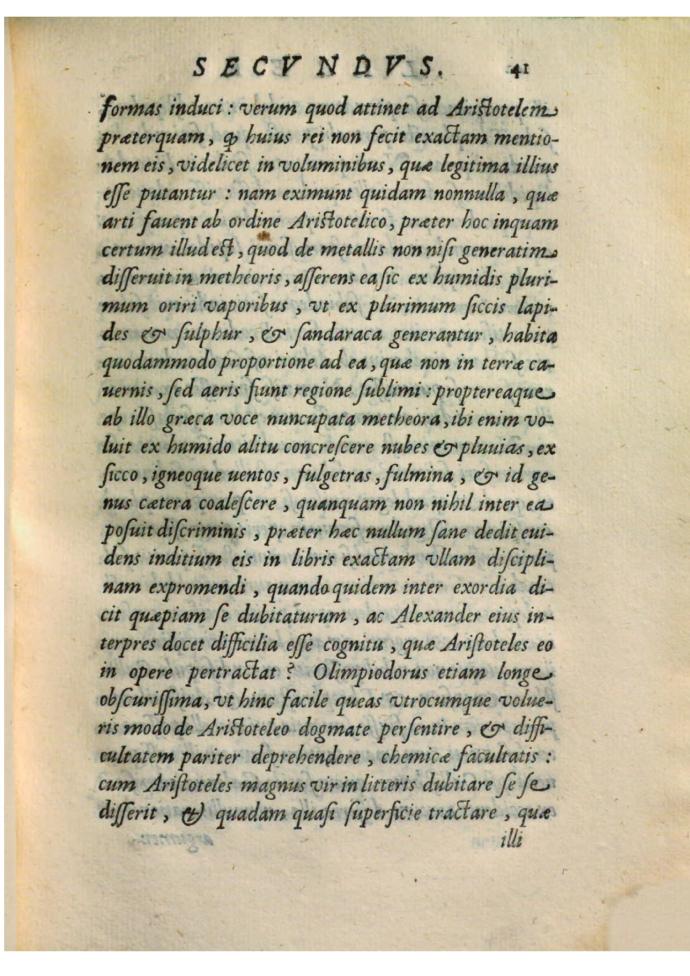 SECVNDVS. 41
formas induci : verum quod attinet ad Aristotelem
præterquam, ꝙ huius rei non fecit exactam mentio-
nem eis, videlicet in voluminibus, quæ legitima illius
esse putantur : nam eximunt quidam nonnulla, quæ
arti fauent ab ordine Aristotelico, præter hoc inquam
certum illud est, quod de metallis non nisi generatim
disseruit in metheoris, asserens ea sic ex humidis pluri-
mum oriri vaporibus, vt ex plurimum siccis lapi-
des & sulphur, & sandaraca generantur, habita
quodammodo proportione ad ea, quæ non in terræ ca-
uernis, sed aeris fiunt regione sublimi : proptereaque
ab illo græca voce nuncupata metheora, ibi enim vo-
luit ex humido alitu concrescere nubes & pluuias, ex
sicco, igneoque uentos, fulgetras, fulmina, & id ge-
nus cætera coalescere, quanquam non nihil inter ea
posuit discriminis, præter hæc nullum sane dedit eui-
dens inditium eis in libris exactam vllam discipli-
nam expromendi, quando quidem inter exordia di-
cit quæpiam se dubitaturum, ac Alexander eius in-
terpres docet difficilia esse cognitu, quæ Aristoteles eo
in opere pertractat ? Olimpiodorus etiam longe
obscurissima, vt hinc facile queas vtrocumque volue-
ris modo de Aristoteleo dogmate persentire, & diffi-
cultatem pariter deprehendere, chemicæ facultatis :
cum Aristoteles magnus vir in litteris dubitare se se
disserit, & quadam quasi superficie tractare, quæ
illi